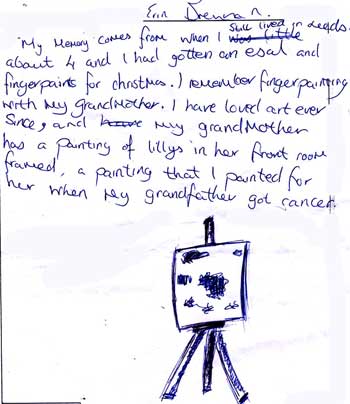 Erin Drennan.
My Memory comes from when I was little still lived in Leeds.
about 4 and I had gotten an esal and
fingerpaints for christmas. I remember fingerpainting
with my grandmother. I have loved art ever
since, and have my grandmother
has a painting of lillys in her front room
framed, a painting that I painted for
her when my grandfather got cancer.